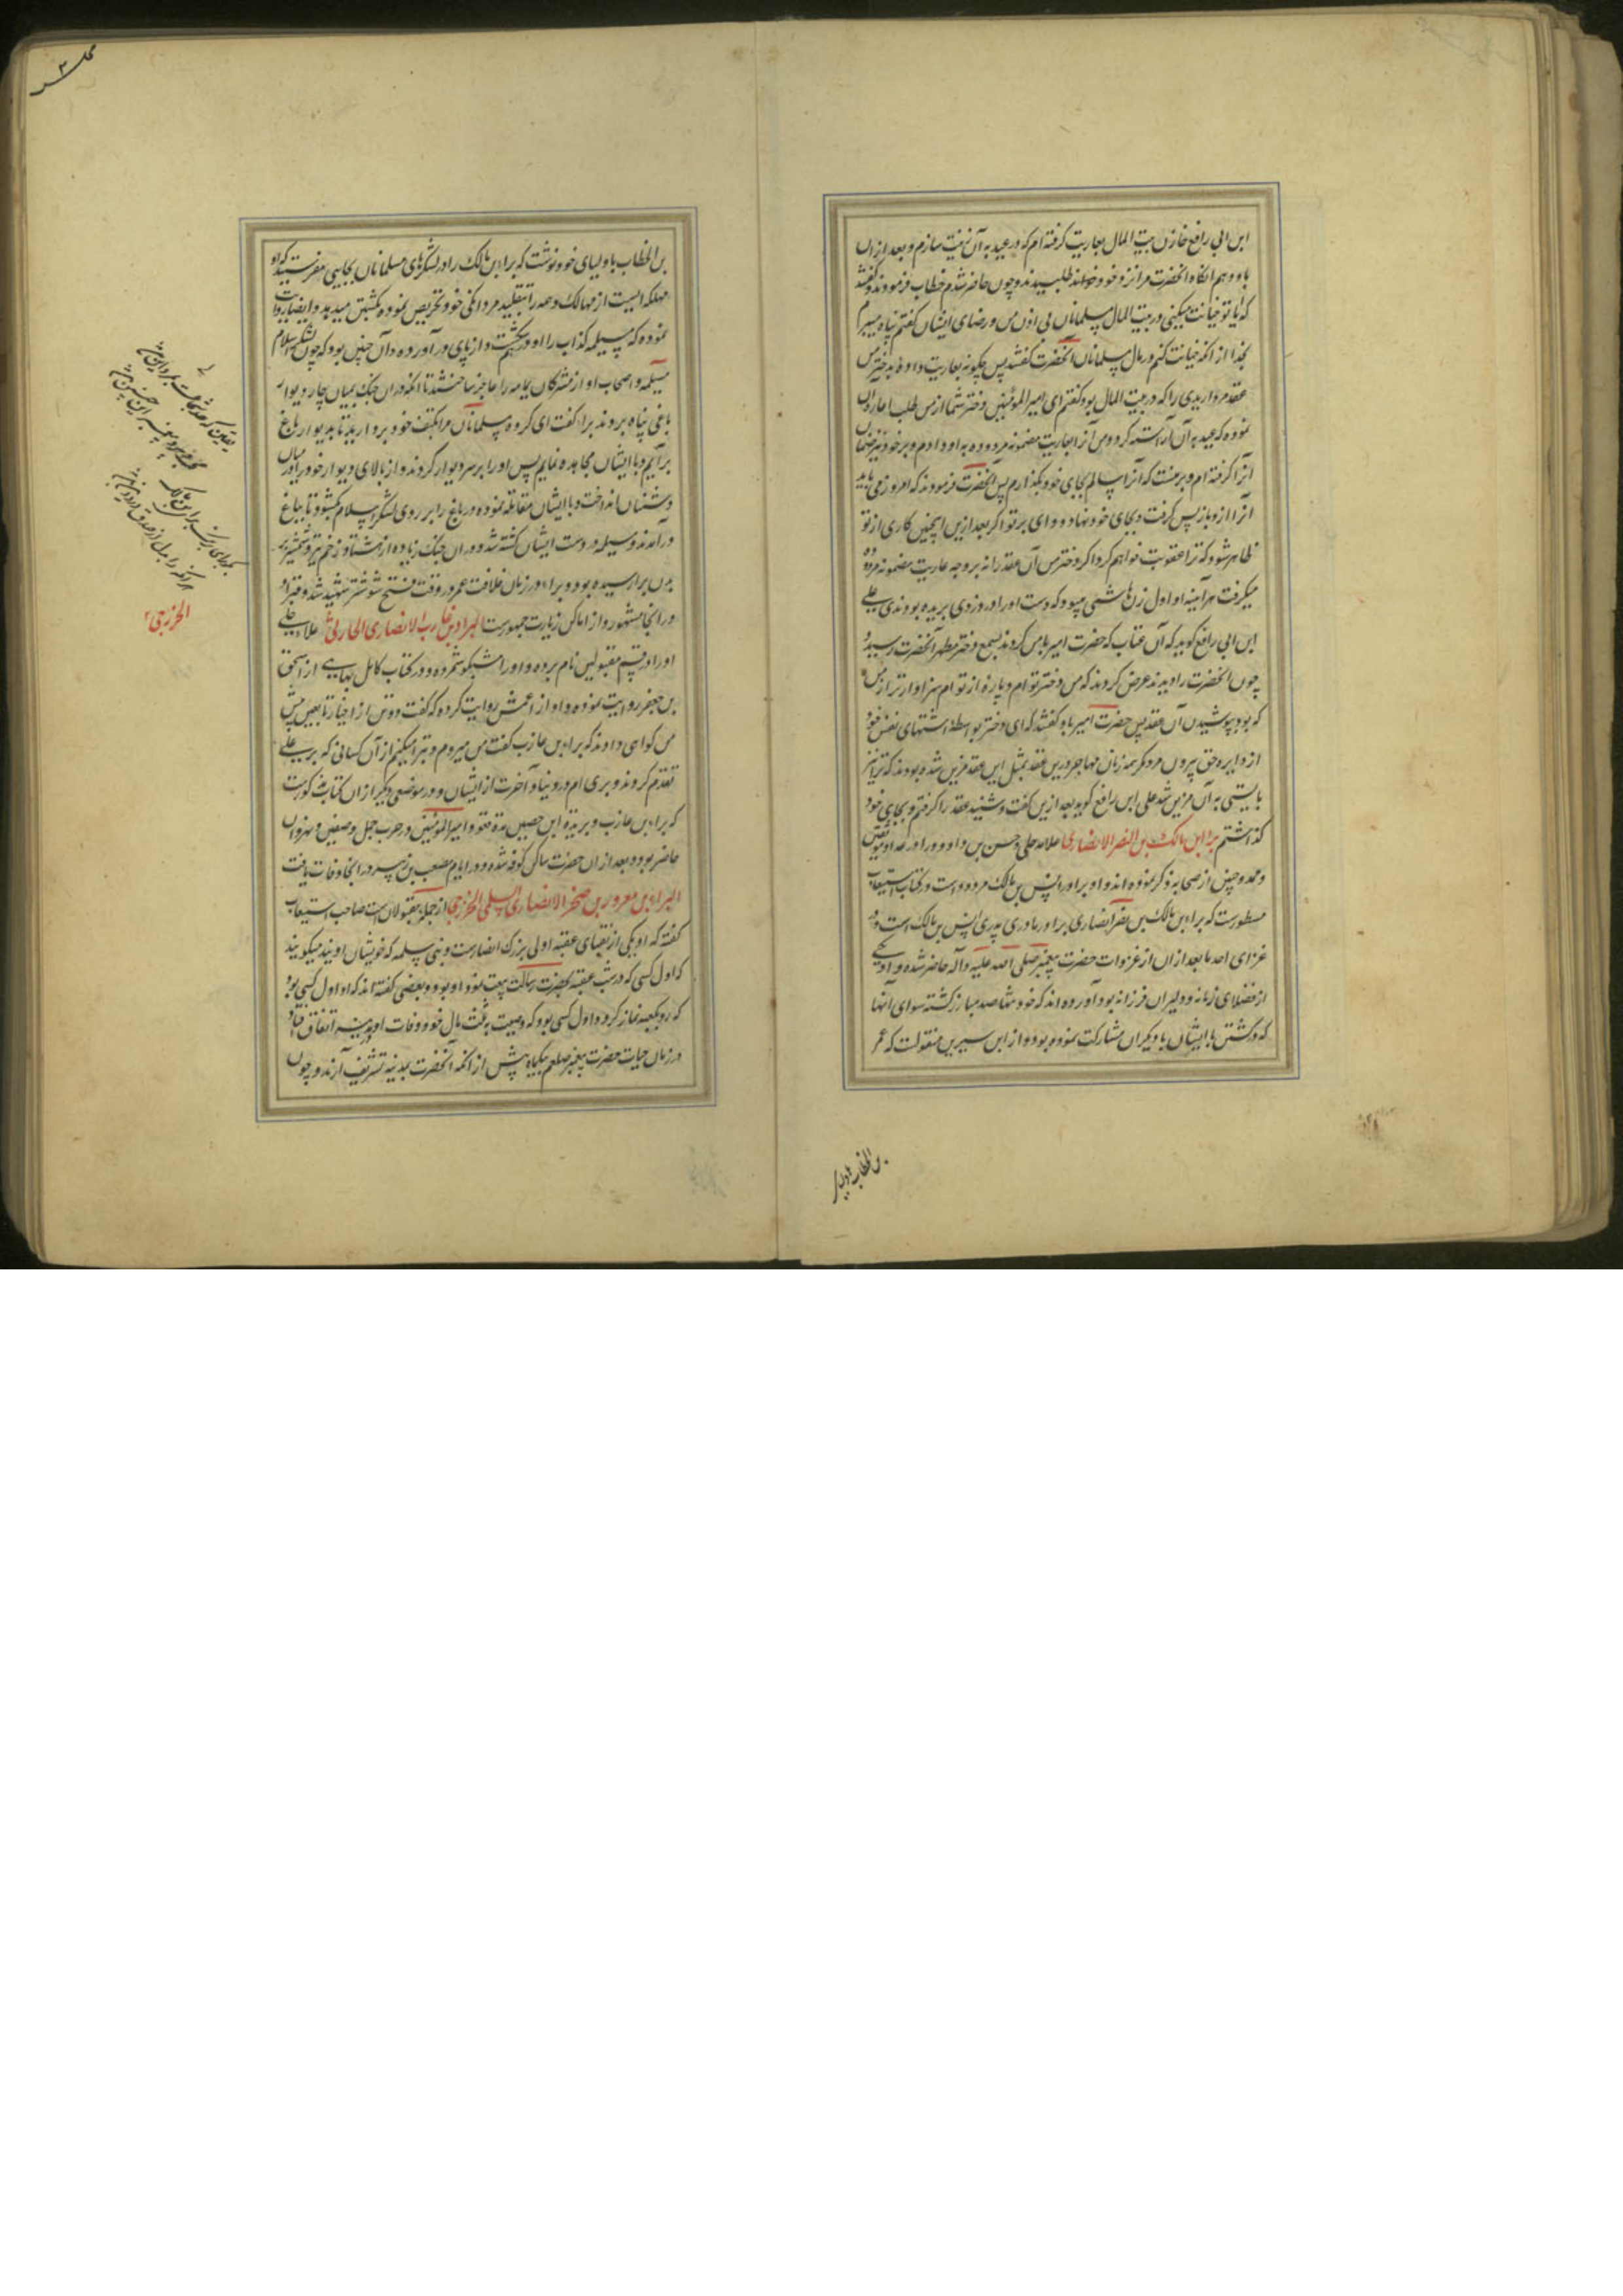 ابن ابی رافع خازن بیت المال بعاریت گرفته ام که در عید به آن زینت سازم و بعد ازان
باو دهم آنگاه آنحضرت مرا نزد خود طلبیدند و چون حاضر شدم خطاب فرمودند و گفتند
که آیا تو خیانت میکنی در بیت المال مسلمانان بی اذن من و رضای ایشان گفتم پناه میبرم
بخدا از آنکه خیانت کنم در مال مسلمانان آنحضرت گفتند پس چگونه بعاریت داده بدختر من
عقد مرواریدی را که در بیت المال بود گفتم ای امیرالمؤمنین دختر شما از من طلب اعاره آن
نموده که عید به آن آراسته گردد و من آنرا بعاریت مضمونه مردوده به او دادم و بر خود نیز ضمان
آنرا گرفته ام و بر منست که آنرا سالم بجای خود بگذارم پس آنحضرت فرمودند که امروز می باید
آنرا ازو باز پس گرفت و بجای خود نهاد و وای بر تو اگر بعد ازین اینچنین کاری از تو
ظاهر شود که ترا عقوبت خواهم کرد و اگر دختر من آن عقد را نه بر وجه عاریت مضمونه مردوده
میگرفت هر آینه او اول زن هاشمی میبود که دست او را در دزدی بریده بودندی علی
ابن ابی رافع گوید که آن عتاب که حضرت امیر بامن کردند بسمع دختر مطهر آنحضرت رسید و
چون آنحضرت را دیدند عرض کردند که من دختر توام و پاره از توام سزاوارتر از من
که بود بپوشیدن آن عقد پس حضرت امیر باو گفتند که ای دختر بواسطه اشتهای نفس خود
از دایره حق بیرون مرو مگر همه زنان مهاجر درین عقد بمثل این عقد مزین شده بودند که ترا نیز
بایستی به آن مزین شد علی ابن رافع گوید بعد ازین گفت و شنید عقد را گرفتم و بجای خود
گذاشتم براء بن مالک بن النضر الانصاری علامه حلی و حسن بن داود
و ممدوحین از صحابه ذکر نموده اند و او برادر انس بن مالک مردود است در کتاب استیعاب
مسطورست که براء بن مالک بن نضر انصاری برادر مادری پدری انس بن مالک است و در
غزای احد ما بعد ازان از غزوات حضرت پیغمبر صلی الله علیه و آله حاضر شده و او یکی
از فضلای زمانه و دلیران فرزانه بود آورده اند که خود بنفسه صد مبارز کشته سوای آنها
که در کشتن با ایشان با دیگران مشارکت نموده بود و از ابن سیرین منقولست که عمر
بن الخطاب باولیا
بن الخطاب باولیای خود نوشت که براء بن مالک را در لشکرهای مسلمانان بجایی مفرستید که او
مهلکه ایست از مهالک
نموده که مسیلمه کذاب را او در هم شکست و از پای در آورده و آن چنین بود که چون لشکر اسلام
مسیلمه و اصحاب او از مشرکان یمامه را عاجز ساختند تا آنکه دران جنگ بمیان چاردیوار
باغی پناه بردند براء گفت ای گروه مسلمانان مرا بکتف خود بردارید تا بدیوار باغ
برآیم و با ایشان مجاهده نمایم پس او را بر سر دیوار کردند و از بالای دیوار خود را در میان
دشمنان انداخت و با ایشان مقاتله نموده در باغ را بر روی لشکر اسلام بگشود تا بباغ
در آمدند و مسیلمه در دست ایشان کشته شد و دران جنگ زیاده از هشتاد زخم تیر و شمشیر بر
بدن براء رسیده بود و براء در زمان خلافت عمر در وقت فتح شوشتر شهید شد و قبر او
در آنجا مشهور و از اماکن زیارت جمهورست البراء بن عازب الانصاری الحارثی علامه حلی
او را در قسم مقبولین نام برده و او را مشکور شمرده و در کتاب کامل بهایی از اسحق
بن جعفر روایت نموده و او از اعمش روایت کرده که گفت دو تن از اخیار تابعین پیش
من گواهی دادند که براء بن عازب گفت من میروم و تبرا میکنم از آن کسانی که بر علی
تقدم کردند و بری ام در دنیا و آخرت از ایشان و در موضعی دیگر ازان کتاب مذکورست
که براء بن عازب و بریده ابن حصین
حاضر بود و بعد ازان حضرت ساکن کوفه شده و در ایام مصعب بن زبیر در آنجا وفات یافت
البراء بن معرور بن صخر الانصاری السلمی الخزرجی از جمله مقبولان است صاحب استیعاب
گفته که او یکی از نقبای عقبه اولی بزرگ انصارست و بنی سلمه که خویشان اویند میگویند
که اول کسی که در شب عقبه بحضرت رسالت بیعت نمود او بود و بعضی گفته اند که او اول کسی بود
که رو بکعبه نماز کرد و اول کسی بود که وصیت به ثلث مال خود و وفات او در مدینه اتفاق افتاد
در زمان حیات حضرت پیغمبر صلعم بیکماه پیش از آنکه آنحضرت بمدینه تشریف آرند و چون
الخزرجی